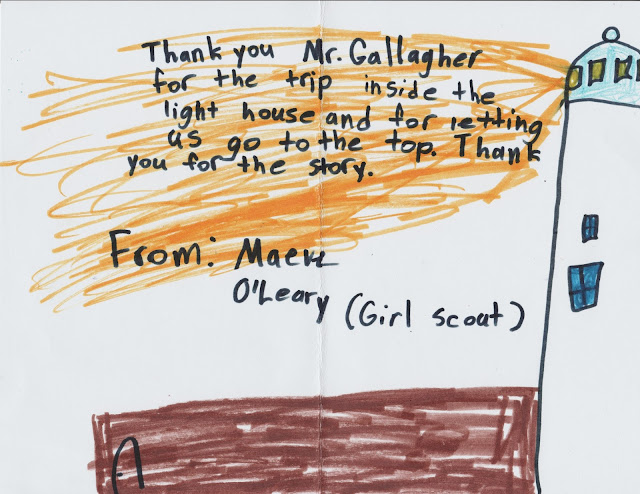 Thank you Mr. Gallagher
for the trip inside the
light house and for letting
us go to the top. Thank
you for the story.
From: Maeve
O'Leary (Girl scout)